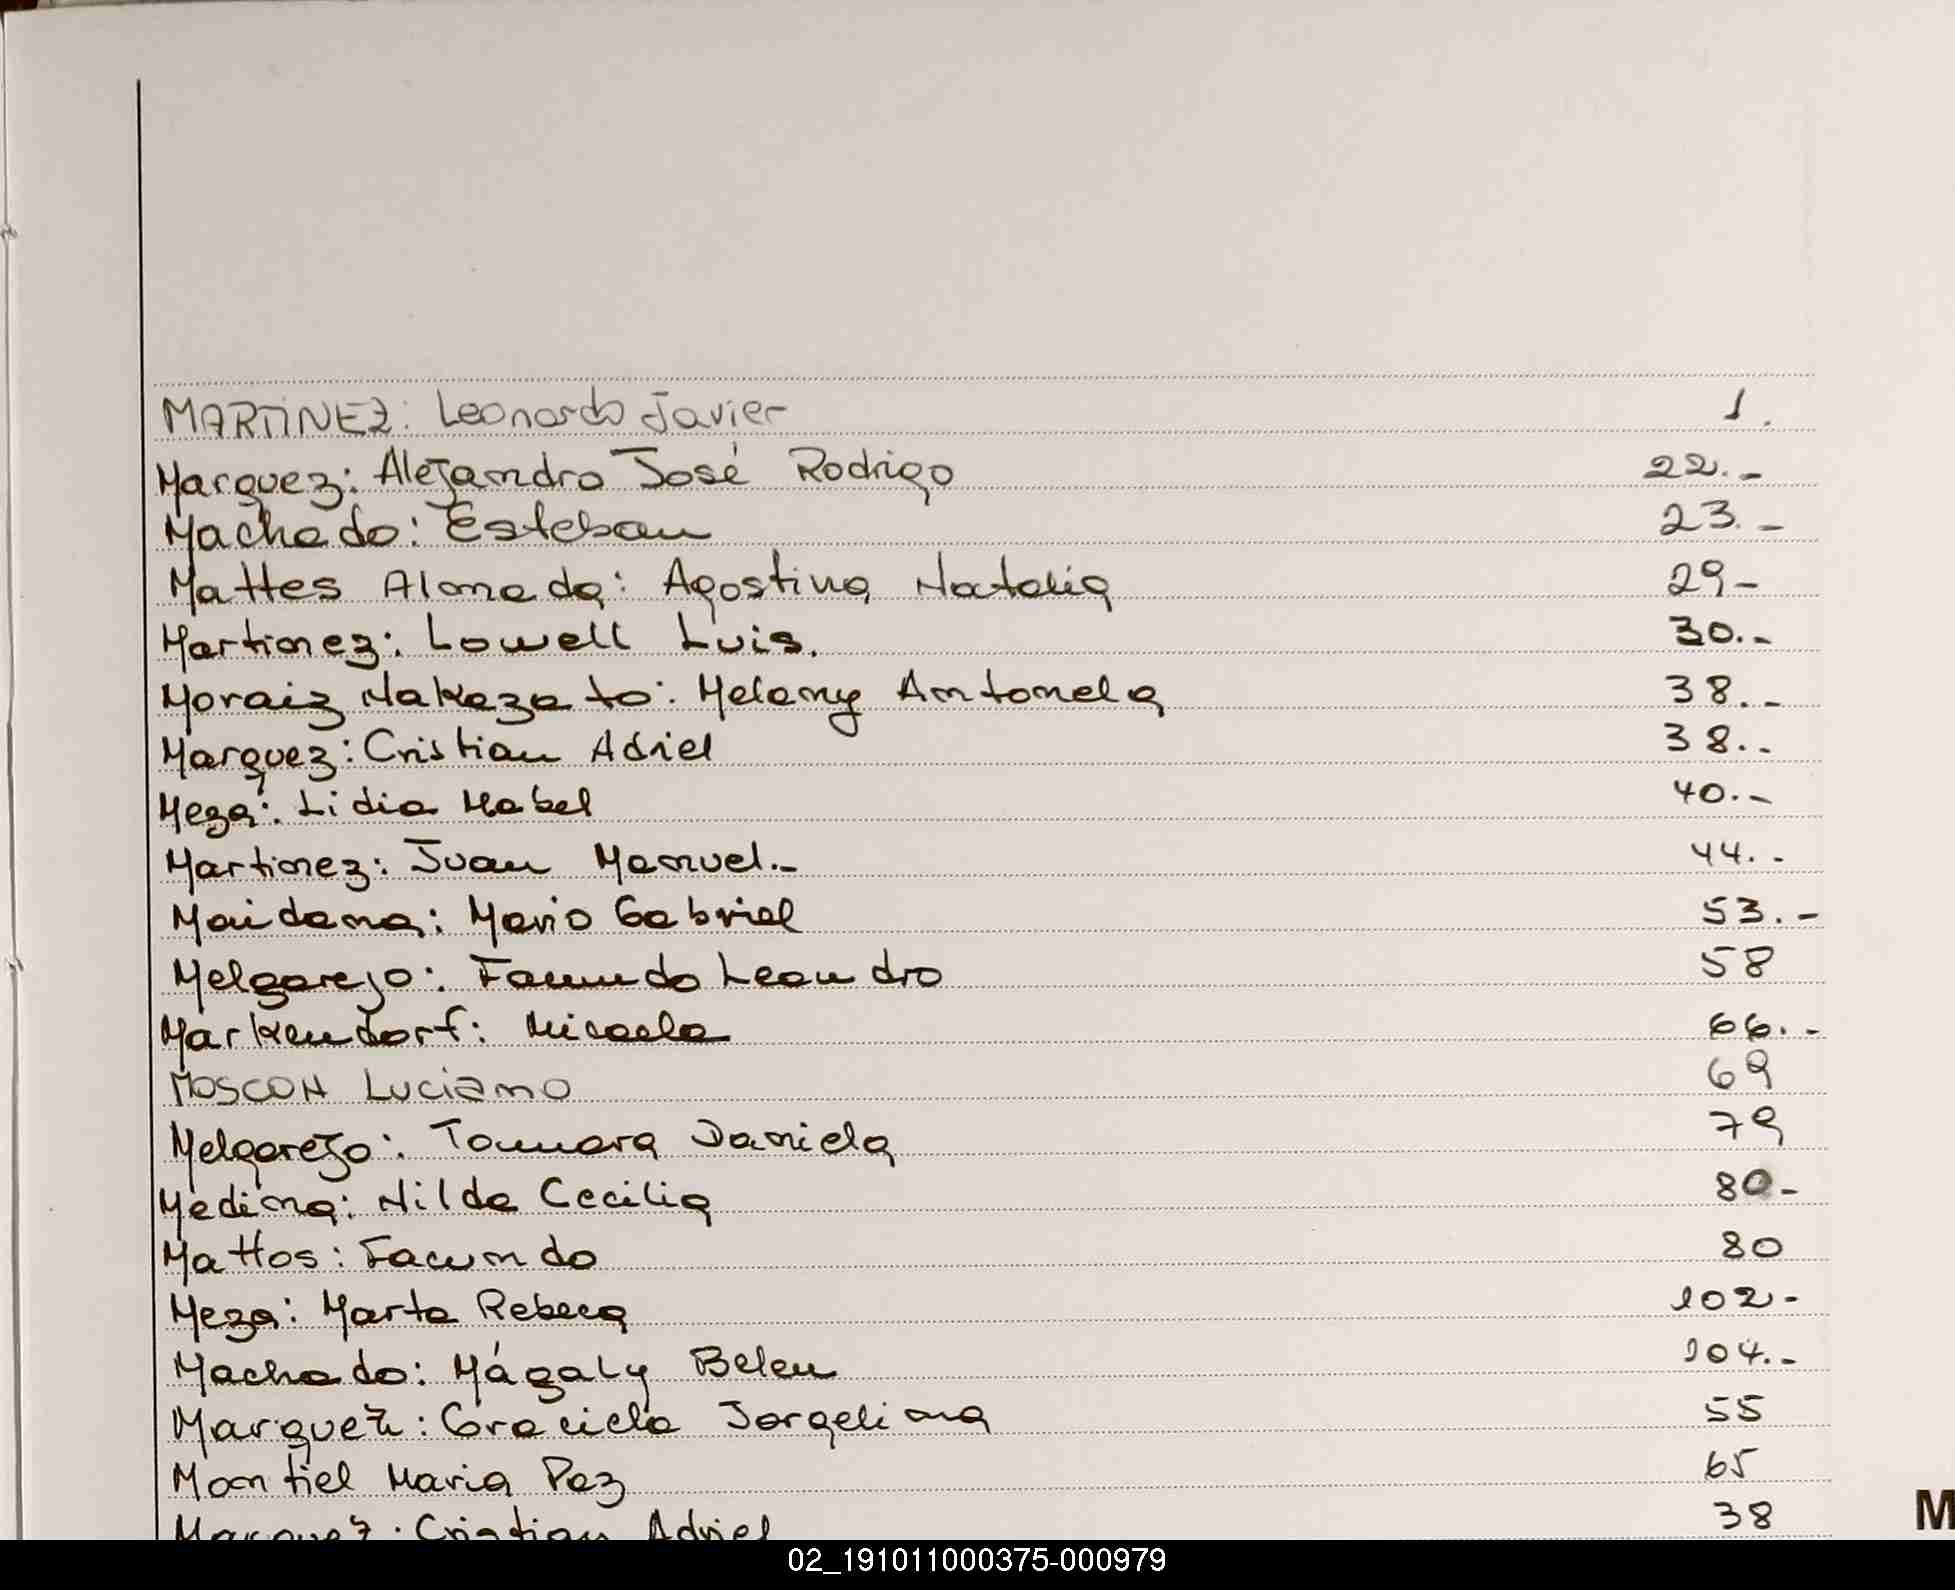 MARTINEZ: Leonardo Javier 1.
Marquez: Alejandro José Rodrigo 22.-
Machado: Esteban 23.-
Mattes Almada: Agostina Natalia 29-
Martinez: Lowell Luis. 30.-
Moraiz Nakazato: Melany Antonela 38.-
Marquez: Cristian Adriel 38.-
Meza: Lidia Mabel 40.-
Martinez: Juan Manuel.- 44.-
Maidana: Mario Gabriel 53.-
Melgarejo: Facundo Leandro 58
Markendorf: Micaela 66.-
MOSCON Luciano 69
Melgarejo: Tamara Daniela 79
Medina: Nilda Cecilia 80-
Mattos: Facundo 80
Meza: Marta Rebeca 102-
Machado: Mágaly Belen 104.-
Marquez: Graciela Jorgelina 55
Montiel Maria Paz 65
Marquez: Cristian Adriel 38
M
02_191011000375-000979